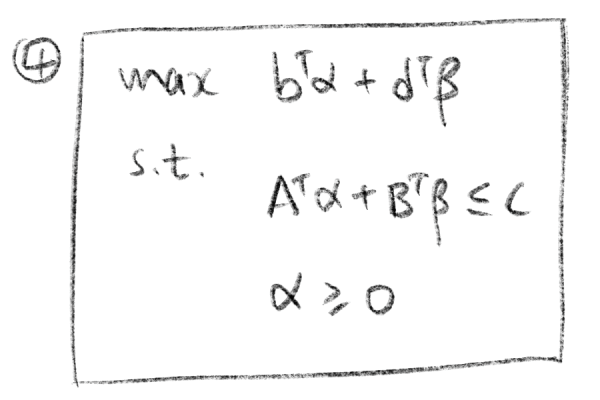 ④ max bᵀα + dᵀβ
s.t.
Aᵀα + Bᵀβ ≤ C
α ≥ 0